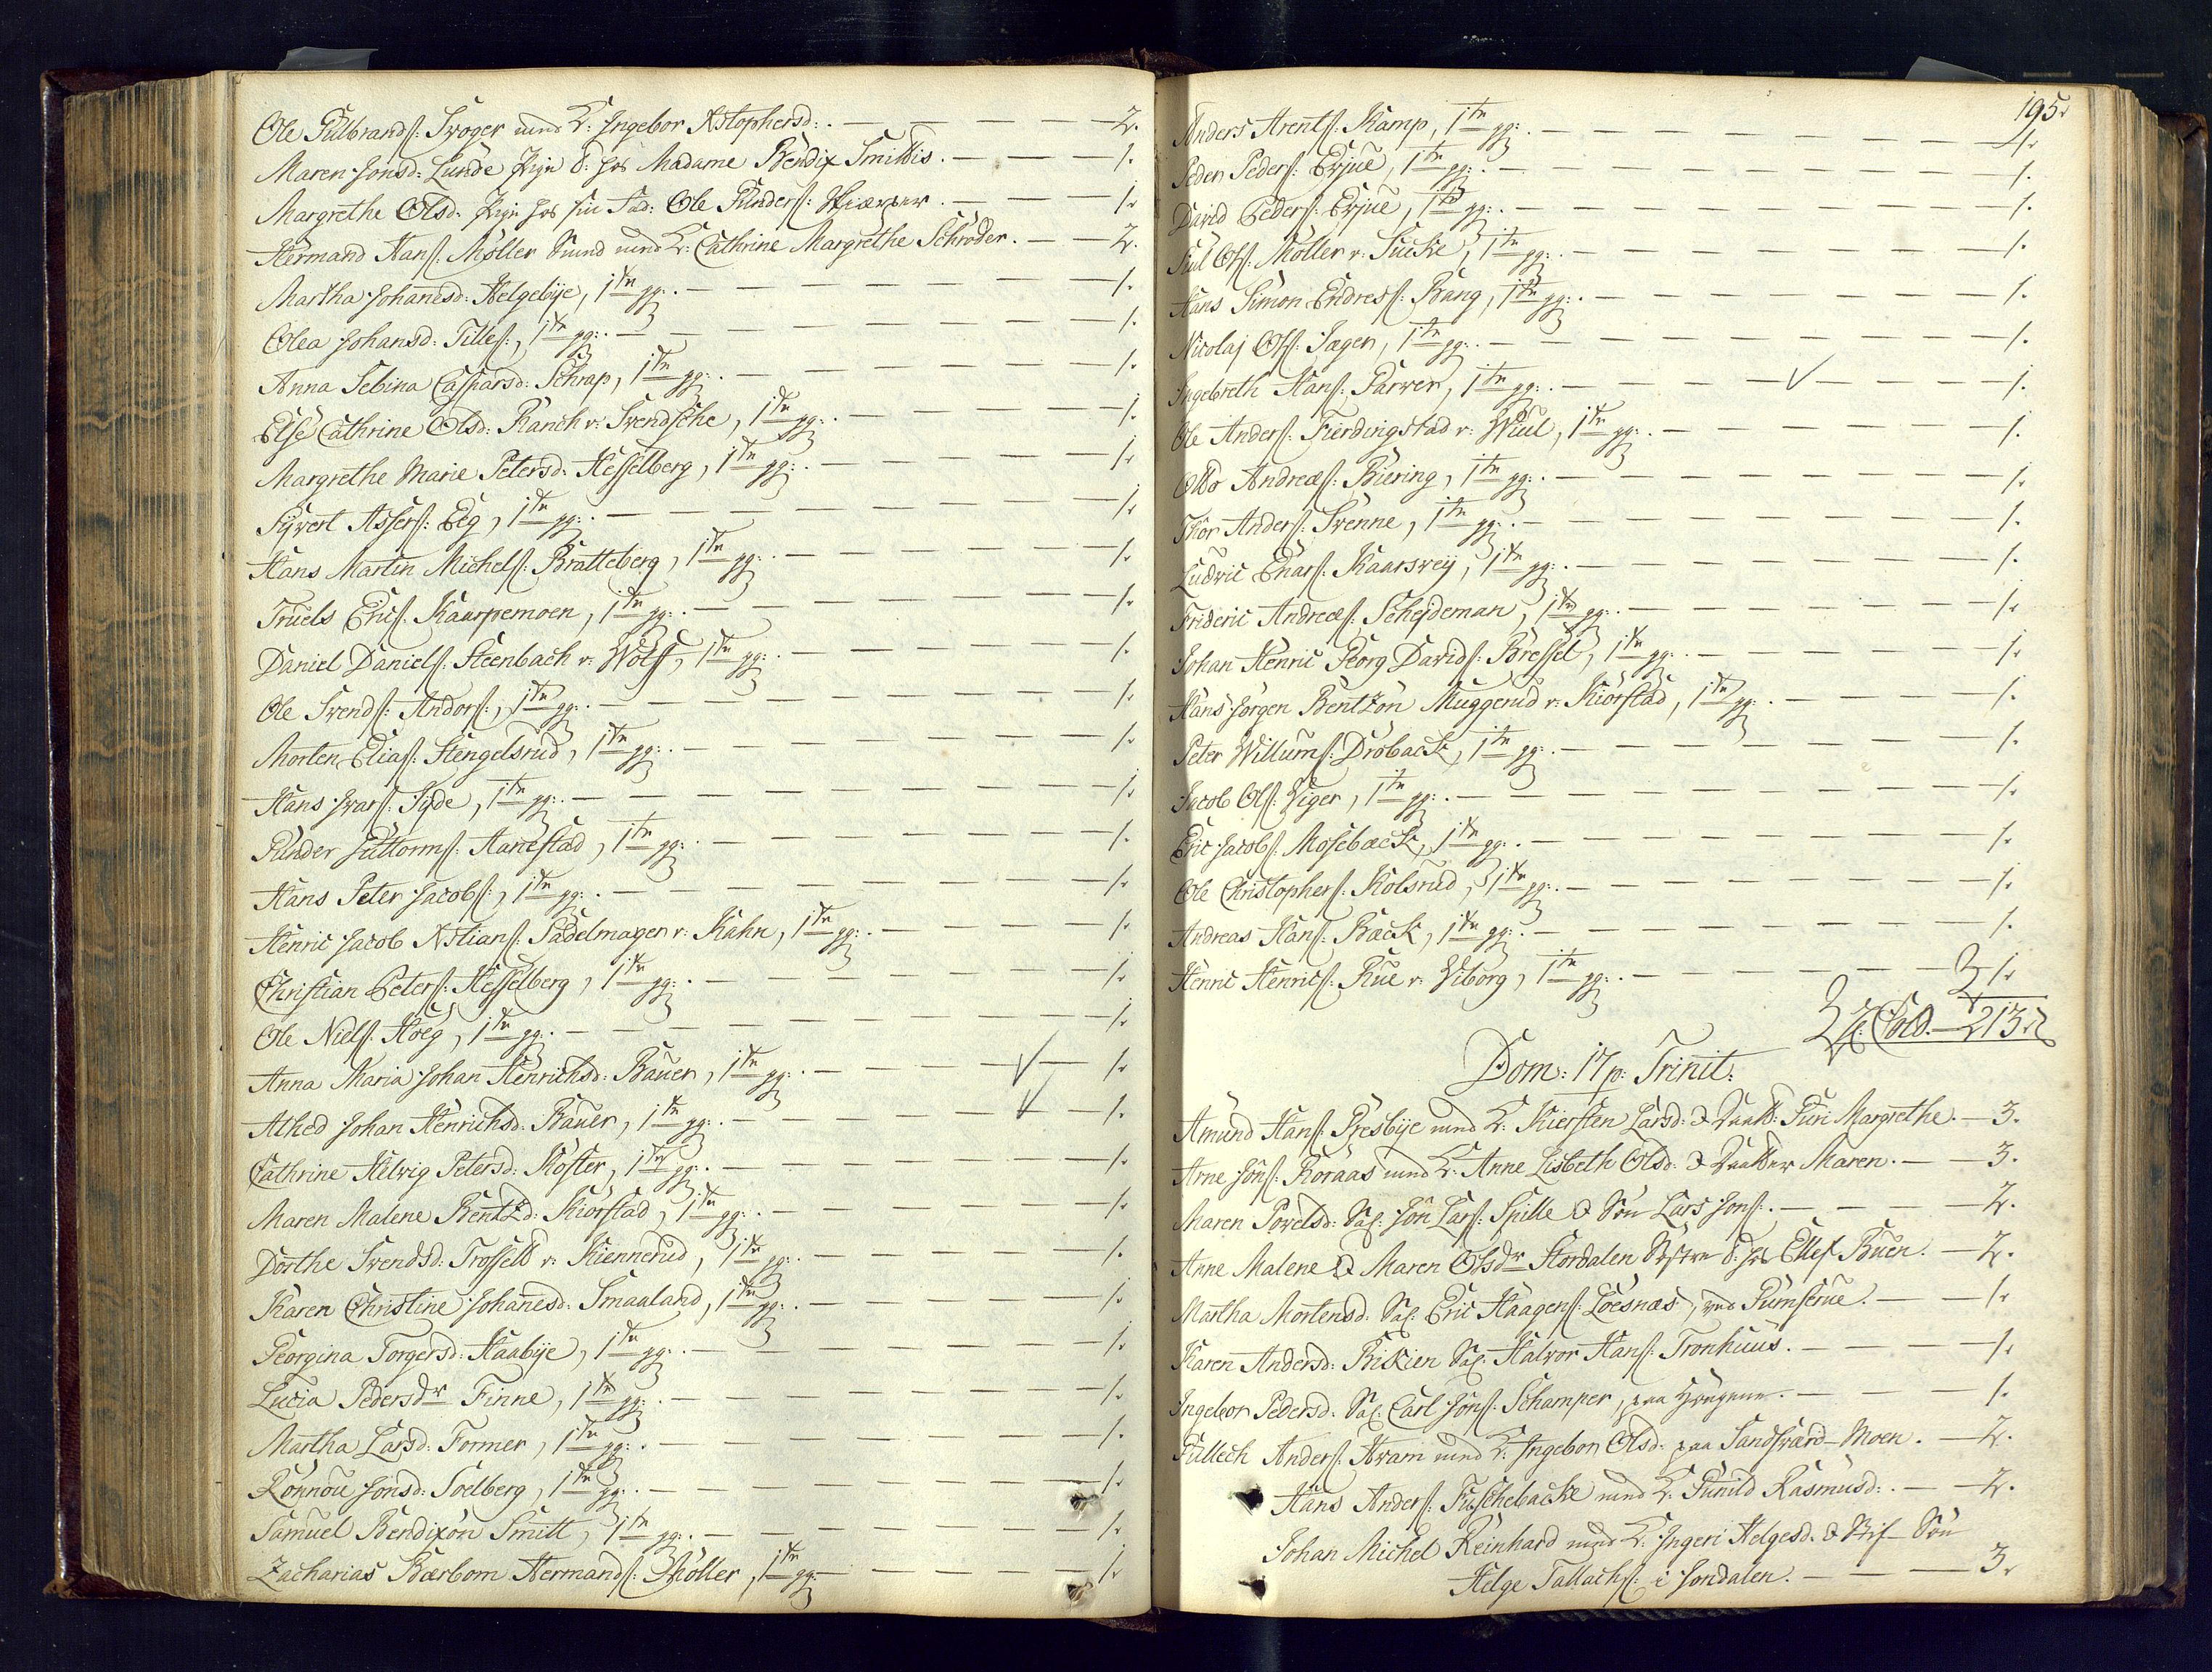 Ole Gulbrands: Svoger und K: Ingebor Xstophersd: . — 2.
Maren Jonsd: Lunde Pige d: hos Madame Bendix Smiths. — 1.
Margrethe Olsd: Pige hos sin Fad: Ole Gunders: — 1.
Hermand Hans: Møller Smed und K: Cathrine Margrethe Schrøder. — 2.
Martha Johanesd: Helgebye, 1te gg: . — 1.
Olea Johansd: Tilles:, 1te gg: . — 1.
Anna Sebina Caspersd: Schrap, 1te gg: . — 1.
Else Cathrine Olsd: Ranch v: Svendsche, 1te gg: . — 1.
Margrethe Marie Petersd: Hesselberg, 1te gg: . — 1.
Syvert Assers: Eeg, 1te gg: . — 1.
Hans Martin Michels: Bratteberg, 1te gg: . — 1.
Truels Erics: Kaarpemoen, 1te gg: . — 1.
Daniel Daniels: Steenbach v: Wolf, 1te gg: . — 1.
Ole Svends: Andors:, 1te gg: . — 1.
Morten Elias: Stengelsrud, 1te gg: . — 1.
Hans Ivars: Syde, 1te gg: . — 1.
Gunder Guttorms: Aanestad, 1te gg: . — 1.
Hans Peter Jacobs:, 1te gg: . — 1.
Henric Jacob Xstians: Sadelmager v: Kahn, 1te gg: . — 1.
Christian Peters: Hesselberg, 1te gg: . — 1.
Ole Niels: Hoeg, 1te gg: . — 1.
Anna Maria Johan Henrichsd: Bauer, 1te gg: . — √ — 1.
Athed Johan Henrichsd: Bauer, 1te gg: . — √ — 1.
Cathrine Helvig Petersd: Koster, 1te gg: . — 1.
Maren Malene Bentzd: Kiørstad, 1te gg: . — 1.
Dorthe Svendsd: Trosseld v: Kiennerud, 1te gg: . — 1.
Karen Christine Johanesd: Smaaland, 1te gg: . — 1.
Georgina Torgersd: Haabye, 1te gg: . — 1.
Lucia Pedersdr Finne, 1te gg: . — 1.
Martha Larsd: Former, 1te gg: . — 1.
Rønnou Jonsd: Soelberg, 1te gg: . — 1.
Samuel Bendixøn Smitt, 1te gg: . — 1.
Zacharias Bærbom Hermands: Møller, 1te gg: — 1.
195.
Anders Arents: Kamp, 1te gg: . — 1.
Peder Peders: Evjue, 1te gg: . — 1.
David Peders: Evjue, 1te gg: . — 1.
Juul Ols: Møller v: Lucke, 1te gg: . — 1.
Hans Simon Endres: Bang, 1te gg: . — 1.
Nicolaj Ols: Jæger, 1te gg: . — 1.
Ingebreth Hans: Farver, 1te gg: . — √ — 1.
Ole Anders: Fierdingstad v: Wiul, 1te gg: . — 1.
Otto Andreæs: Biering, 1te gg: . — 1.
Thor Anders: Svenne, 1te gg: . — 1.
Ludvic Enars: Kaarsvey, 1te gg: . — 1.
Frideric Andreæs: Schejdeman, 1te gg: . — 1.
Johan Henric Georg Davids: Bressel, 1te gg: . — 1.
Hans Jørgen Bentzøn Muggerud v: Kiørstad, 1te gg: . — 1.
Peter Willums: Drøback, 1te gg: . — 1.
Jacob Ols: Viger, 1te gg: . — 1.
Eric Jacobs: Mosebæck, 1te gg: . — 1.
Ole Christophers: Kolsrud, 1te gg: . — 1.
Andreas Hans: Back, 1te gg: . — 1.
Henric Henrics: Rue v: Viborg, 1te gg: . — 1.
— 213.
Dom: 17 p: Trinit:
Amund Hans: Presbye und K: Kiersten Larsd: & Daatt: Guri Margrethe. — 3.
Arne Jøns: Koraas und K: Anne Lisbeth Olsd: & Daatter Maren. — 3.
Maren Povelsd: Sal: Jon Lars: Spille & Søn Lars Jons: . — 2.
Anne Malene & Maren Olsdr Stordalen Søstre d: hos Ellef Buen. — 2.
Martha Mortensd: Sal: Eric Haagens: Loesnæs, ved Gumserue. — 1.
Karen Andersd: Bikien Sal: Halvor Hans: Tronhuus. — 1.
Ingebor Pedersd: Sal: Carl Jons: Schamper, paa Haugene. — 1.
Gullech Anders: Avam und K: Ingebor Olsd: paa Sandsværd-Moen. — 2.
Hans Anders: Fuschebache und K: Gunild Rasmusd: . — 2.
Johan Michel Reinhard und K: Ingeri Helgesd: & Stif-Søn
Helge Tallachs: i Jondalen. — 3.